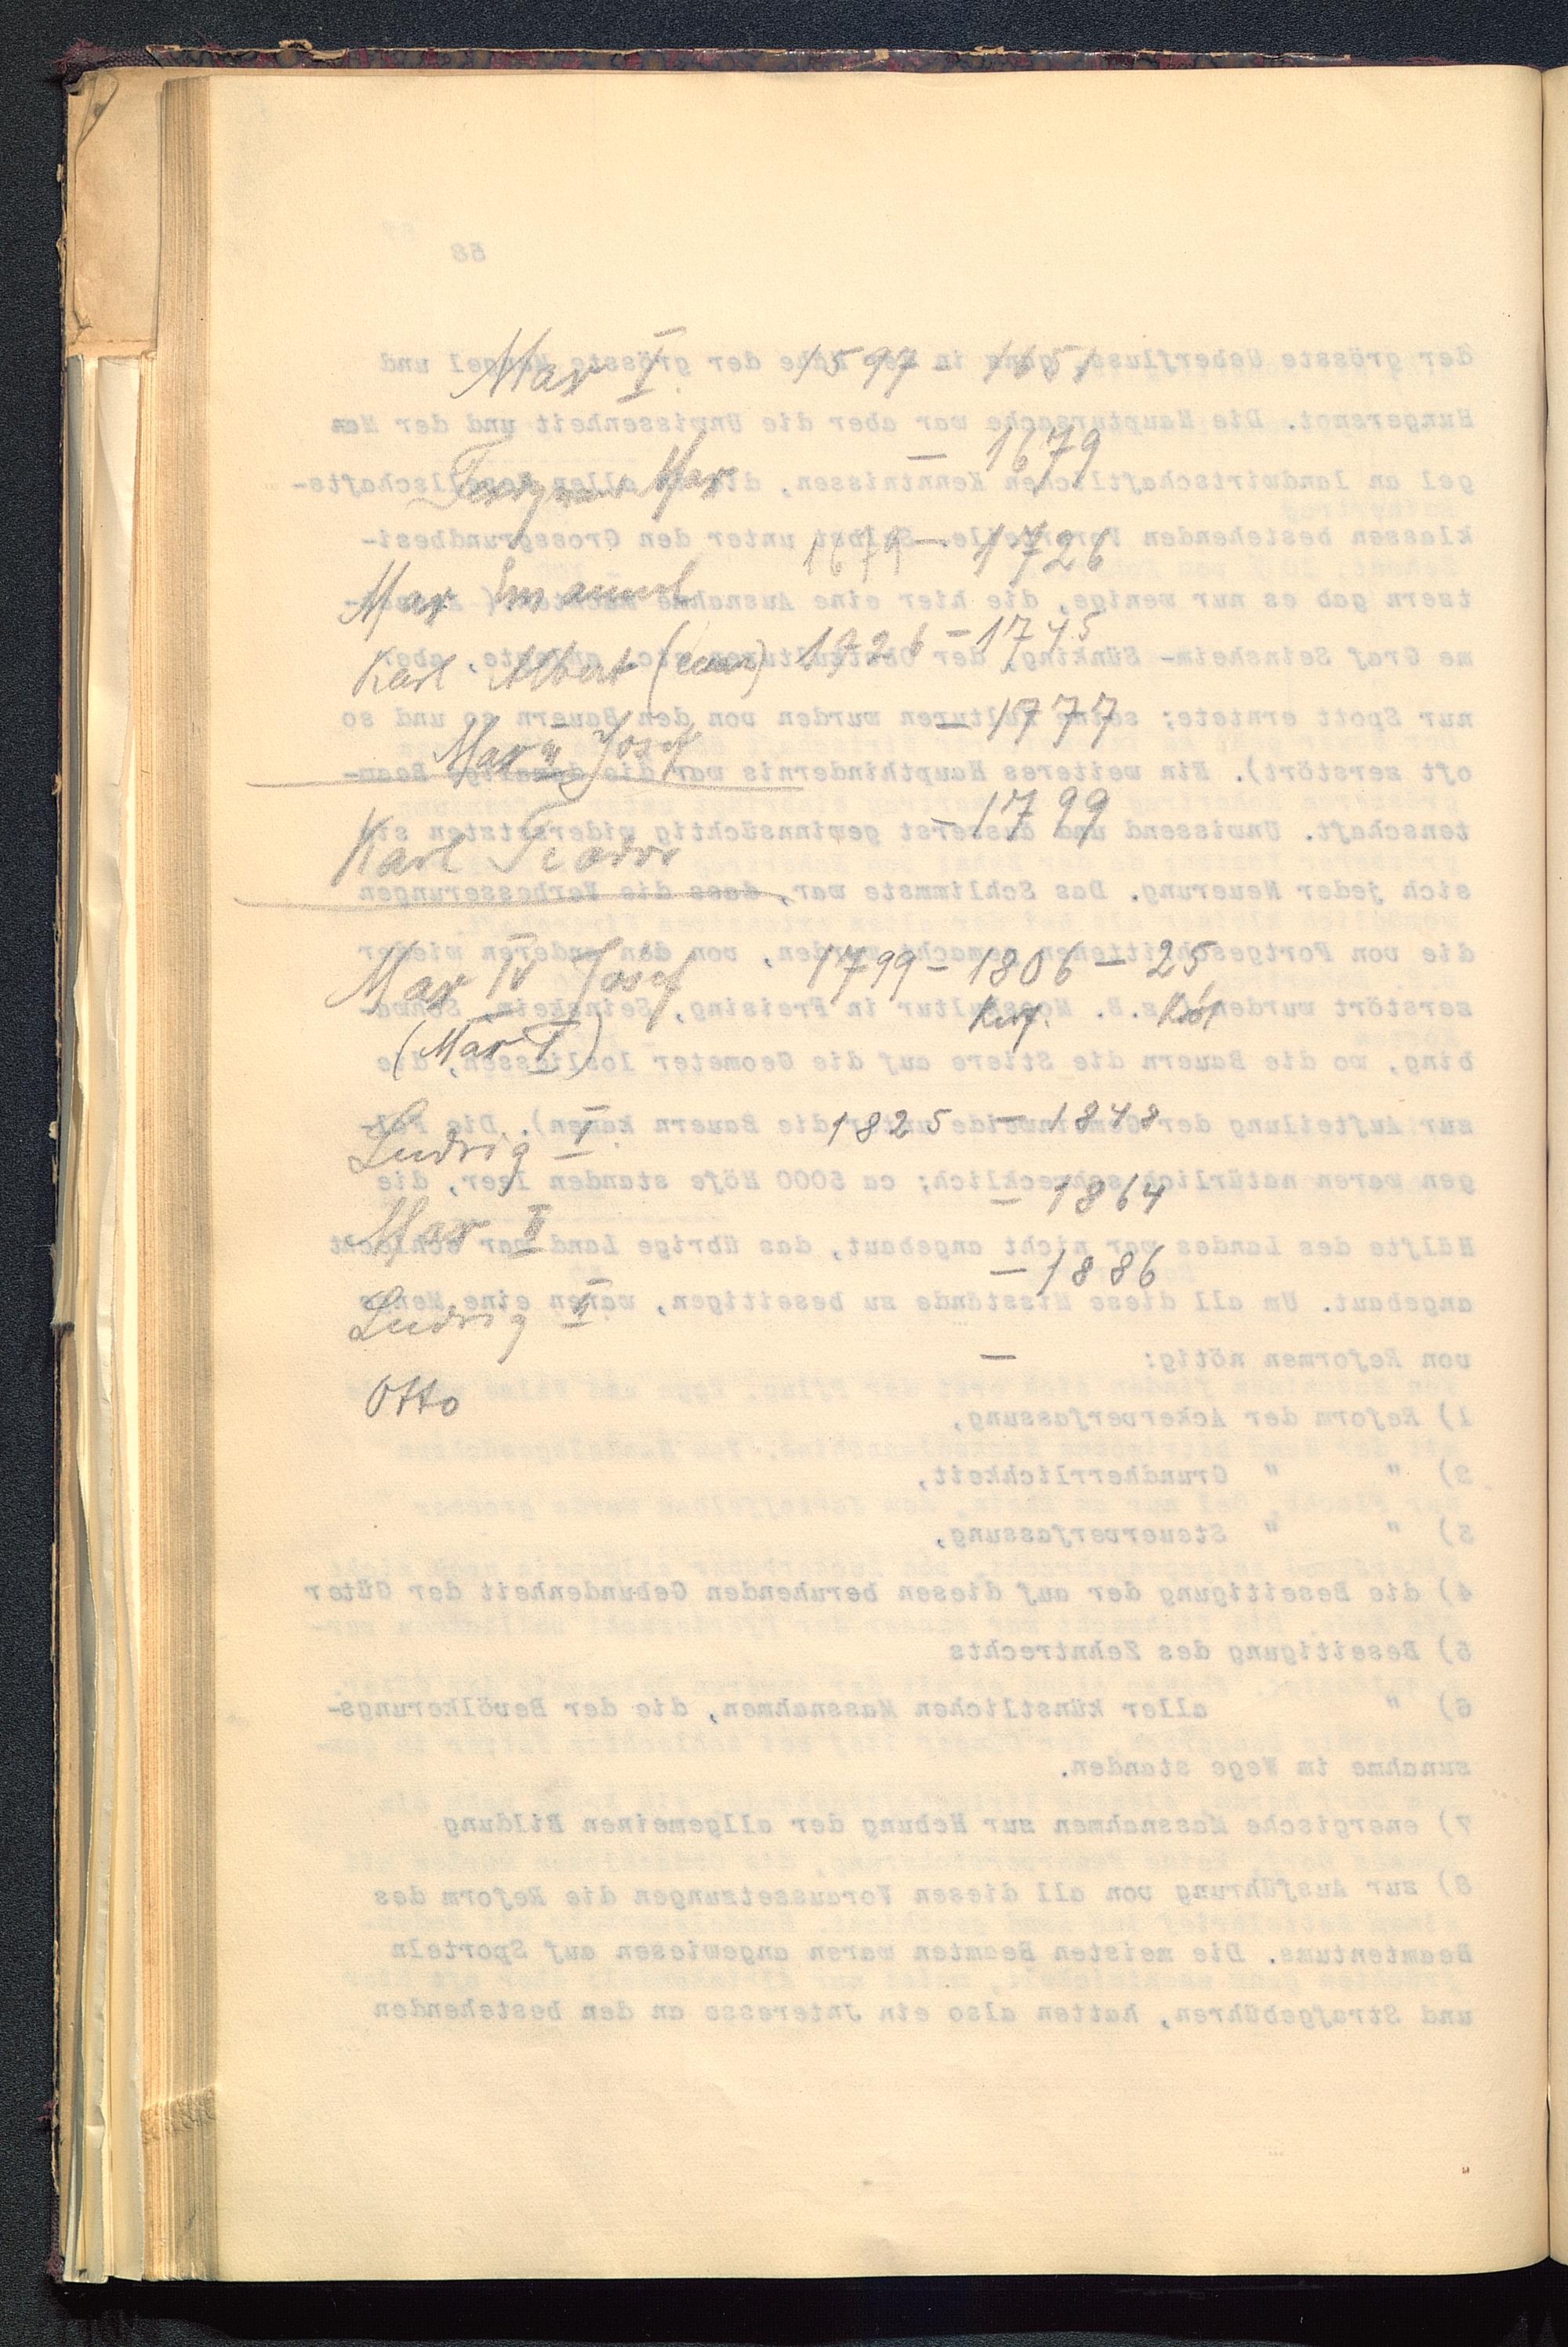 Max I. 1597 – 1651
Ferdinand Max – 1679
Max Emanuel 1679 – 1726
Karl Albert ( ) 1726 – 1745
Max III Josef – 1777
Karl Teodor – 1799
Max IV Josef 1799 – 1806 – 25
(Max I) Kurf. Kö
Ludwig I. 1825 – 1848
Max II – 1864
Ludwig II. – 1886
Otto –
58
der grösste Ueberfluss, ganz in der Nähe der grösste Mangel und
Hungersnot. Die Hauptursache war aber die Unwissenheit und der Man
gel an landwirtschaftlichen Kenntnissen, die in allen Gesellschafts-
klassen bestehenden Vorurteile. Selbst unter den Grossgrundbesi-
tzern gab es nur wenige, die hier eine Ausnahme machten (
me Graf Seinsheim- Sünking, der Obstkulturen etc. anlegte, aber
nur Spott erntete; seine Kulturen wurden von den Bauern so und so
oft zerstört). Ein weiteres Haupthindernis war die damalige Beam-
tenschaft. Unwissend und äusserst gewinnsüchtig widersetzten sie
sich jeder Neuerung. Das Schlimmste war, dass die Verbesserungen
die von Fortgeschrittenen gemacht wurden, von den anderen wieder
zerstört wurden z.B. Mooskultur in Freising, Seinsheim, Schwa-
bing, wo die Bauern die Stiere auf die Geometer losliessen, die
zur Aufteilung der Gemeinweide unter die Bauern kamen). Die Fol-
gen waren natürlich schrecklich; ca 5000 Höfe standen leer, die
Hälfte des Landes war nicht angebaut, das übrige Land war schlecht
angebaut. Um all diese Misstände zu beseitigen, waren eine Menge
von Reformen nötig:
1) Reform der Ackerverfassung,
2) " " Grundherrlichkeit,
3) " " Steuerverfassung,
4) die Beseitigung der auf diesen beruhenden Gebundenheit der Güter
5) Beseitigung des Zehntrechts
6) " aller künstlichen Massnahmen, die der Bevölkerungs-
zunahme im Wege standen.
7) energische Massnahmen zur Hebung der allgemeinen Bildung
8) zur Ausführung von all diesen Voraussetzungen die Reform des
Beamtentums. Die meisten Beamten waren angewiesen auf Sporteln
und Strafgebühren, hatten also ein Jnteresse an den bestehenden